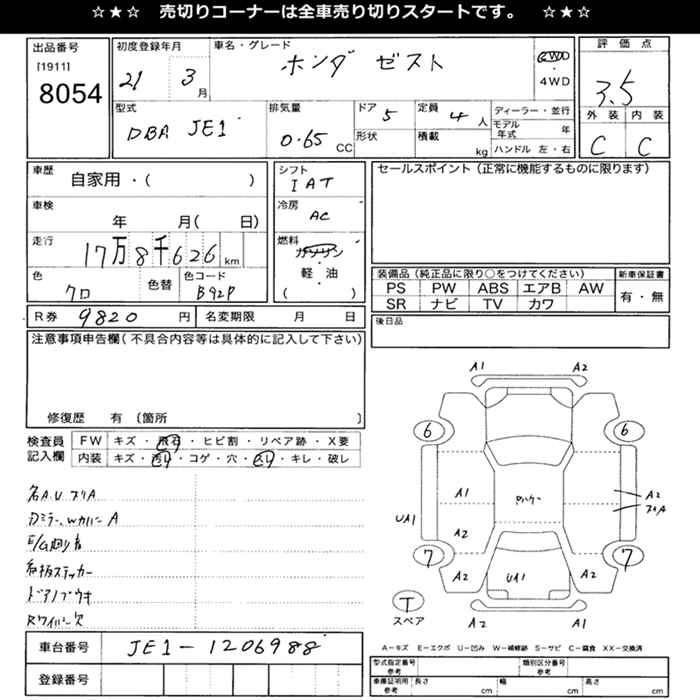 ☆★☆ 売切りコーナーは全車売り切りスタートです。 ☆★☆
出品番号
[1911]
8054
初度登録年月
21 3月
車名・グレード
ホンダ ゼスト
2WD
・
4WD
評価点
3.5
外装 内装
C C
型式
DBA JE1
排気量
0.65 CC
ドア 5
形状
定員 4人
積載 kg
ディーラー・並行
モデル年式 年
ハンドル 左・右
車歴
自家用・( )
車検
年 月( 日)
走行
17万8千626km
色
クロ
色替
色コード
B92P
シフト
IAT
冷房
AC
燃料
ガソリン
・
軽油
( )
セールスポイント(正常に機能するものに限ります)
装備品(純正品に限り○をつけてください)
PS PW ABS エアB AW
SR ナビ TV カワ
新車保証書
有・無
R券 9820 円 名変期限 月 日
後日品
注意事項申告欄(不具合内容等は具体的に記入して下さい)
修復歴 有 〔箇所 〕
検査員記入欄
FW キズ・飛石・ヒビ割・リペア跡・X要
内装 キズ・汚れ・コゲ・穴・スレ・キレ・破レ
各A.U.
カバーA
ステッカー
Rワイパー欠
A1 A2
6 6
A1
UA1
A2
A2
7 7
A2 UA1 A2
T
スペア
A2 A1
車台番号 JE1-1206988
登録番号
A−キズ E−エクボ U−凹み W−補修跡 S−サビ C−腐食 XX−交換済
型式指定番号 参考
類別区分番号 参考
車庫証明用 参考 長さ cm 幅 cm 高さ cm